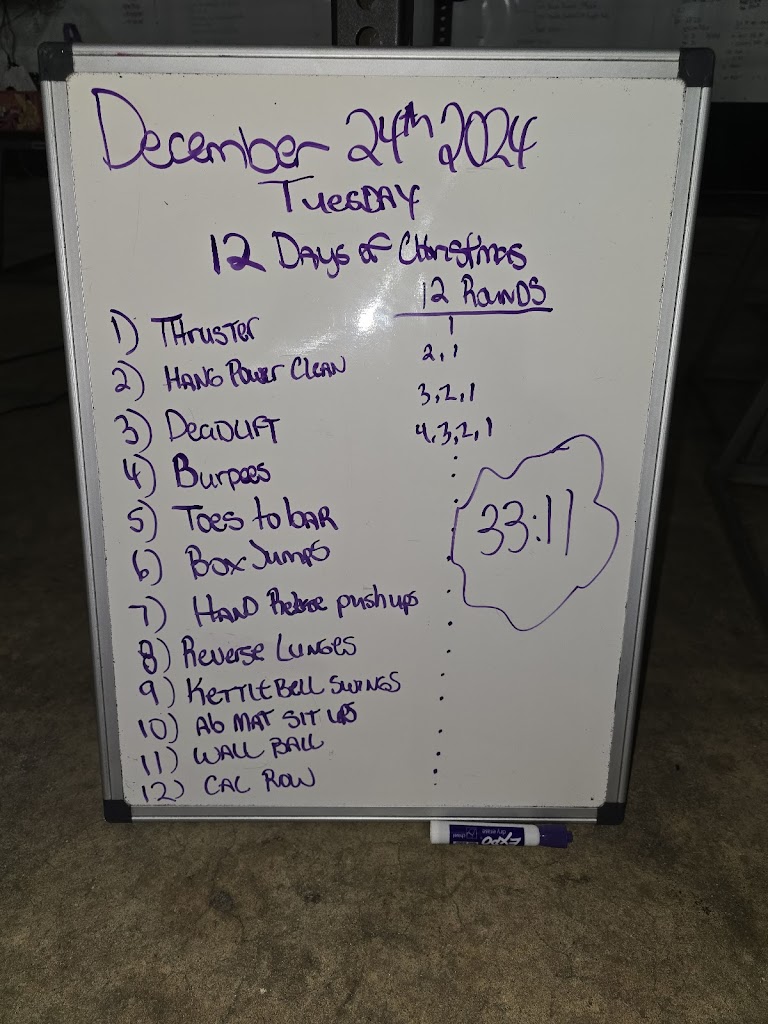 December 24th 2024
TUESDAY
12 DAYS of Christmas
12 ROUNDS
1) THRUSTER
1
2) HANG POWER CLEAN
2,1
3) DEADLIFT
3,2,1
4) Burpees
4,3,2,1
5) Toes to BAR
6) Box Jumps
7) HAND Release push ups
8) Reverse Lunges
9) KETTLEBELL SWINGS
10) Ab MAT SIT UPS
11) WALL BALL
12) CAL ROW
33:11
EXPO